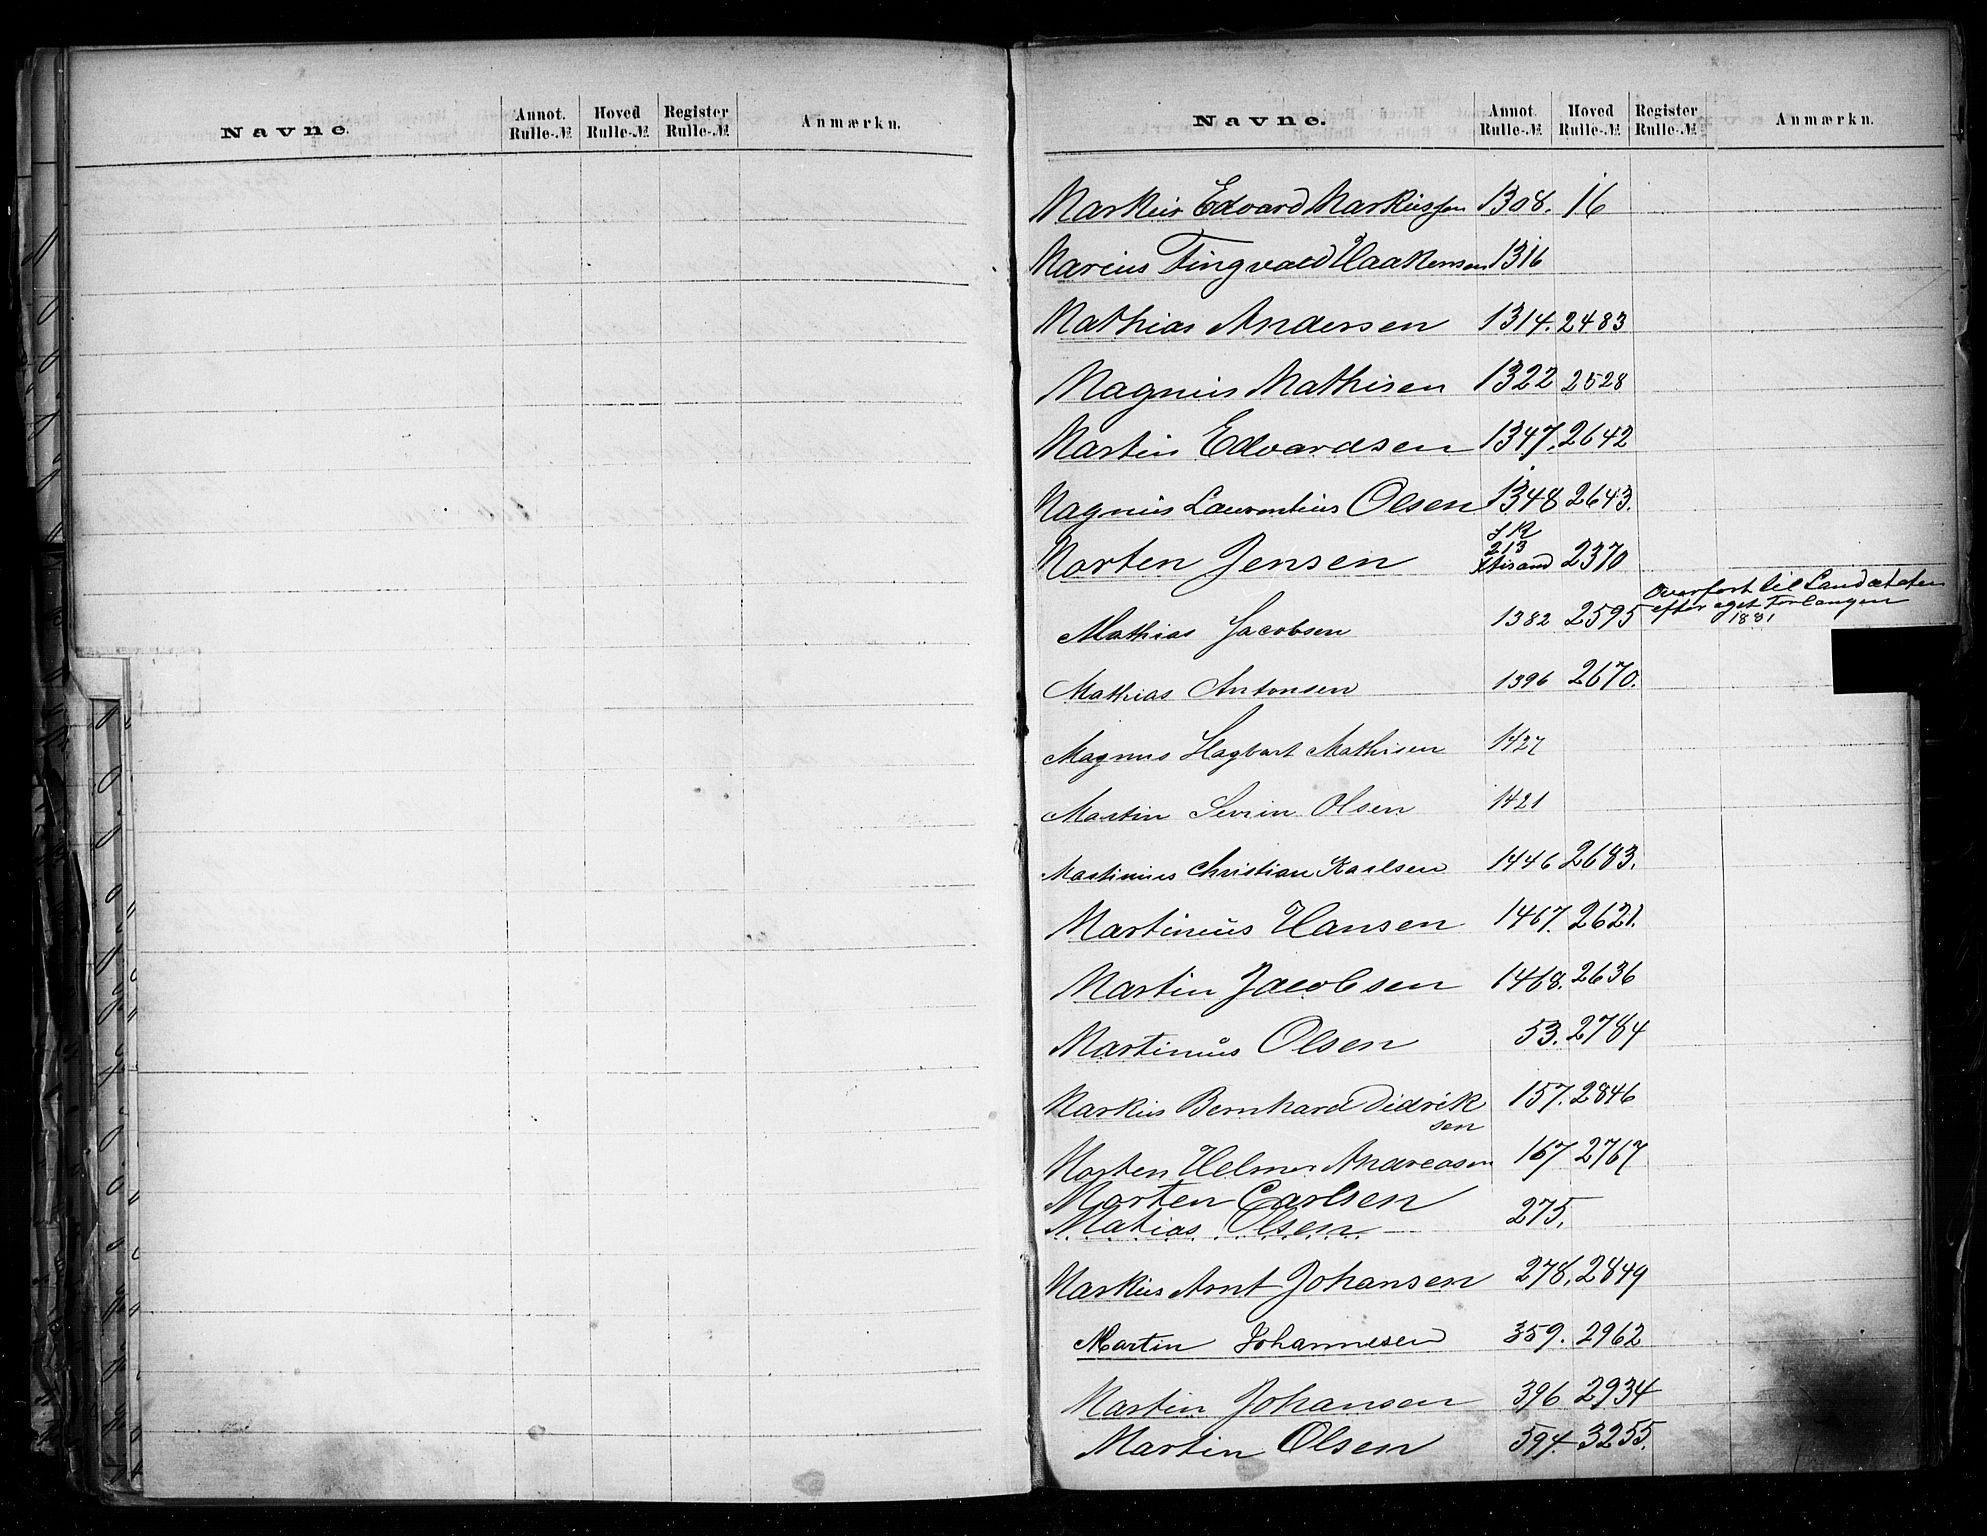 Navne. Annot. Rulle-№ Hoved Rulle-№ Register Rulle-№ Anmærkn.
Navne. Annot. Rulle-№ Hoved Rulle-№ Register Rulle-№ Anmærkn.
Markus Edvard Markussen 1308. 16
Marius Tingvald Haakensen 1316
Mathias Andersen 1314. 2483
Magnus Mathisen 1322 2528
Martin Edvardsen 1347. 2642
Magnus Laurentius Olsen 1348 2643.
Morten Jensen 213 2370
Overført til Landetaten
Mathias Jacobsen 1382 2595 efter eget Forlangen
1881
Mathias Antonsen 1396 2670.
Magnus Hagbart Mathisen 1427
Martin Sevrin Olsen 1421
Martinius Christian Karlsen 1446 2683.
Martinius Hansen 1467. 2621.
Martin Jacobsen 1468. 2636
Martinus Olsen 53. 2784
Markus Bernhard Didrik 157. 2846
sen
Morten Helmer Andreasen 167 2767
Morten Carlsen
Matias Olsen 275.
Markus Arnt Johansen 278. 2849
Martin Johannesen 359. 2962
Martin Johansen 396 2934
Martin Olsen 594. 3255.